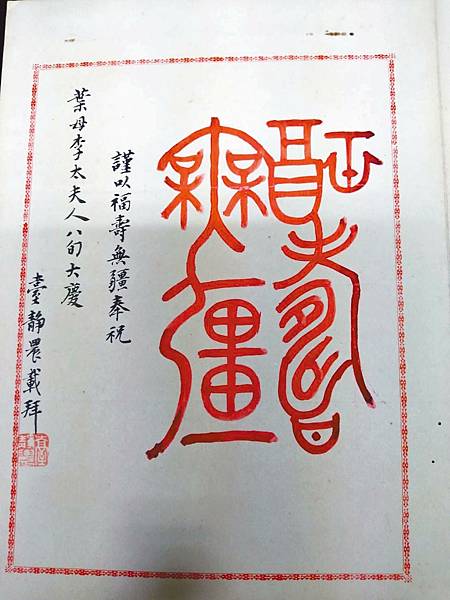 福壽
無疆
謹以福壽無疆奉祝
葉母李太夫人八旬大慶
臺靜農載拜